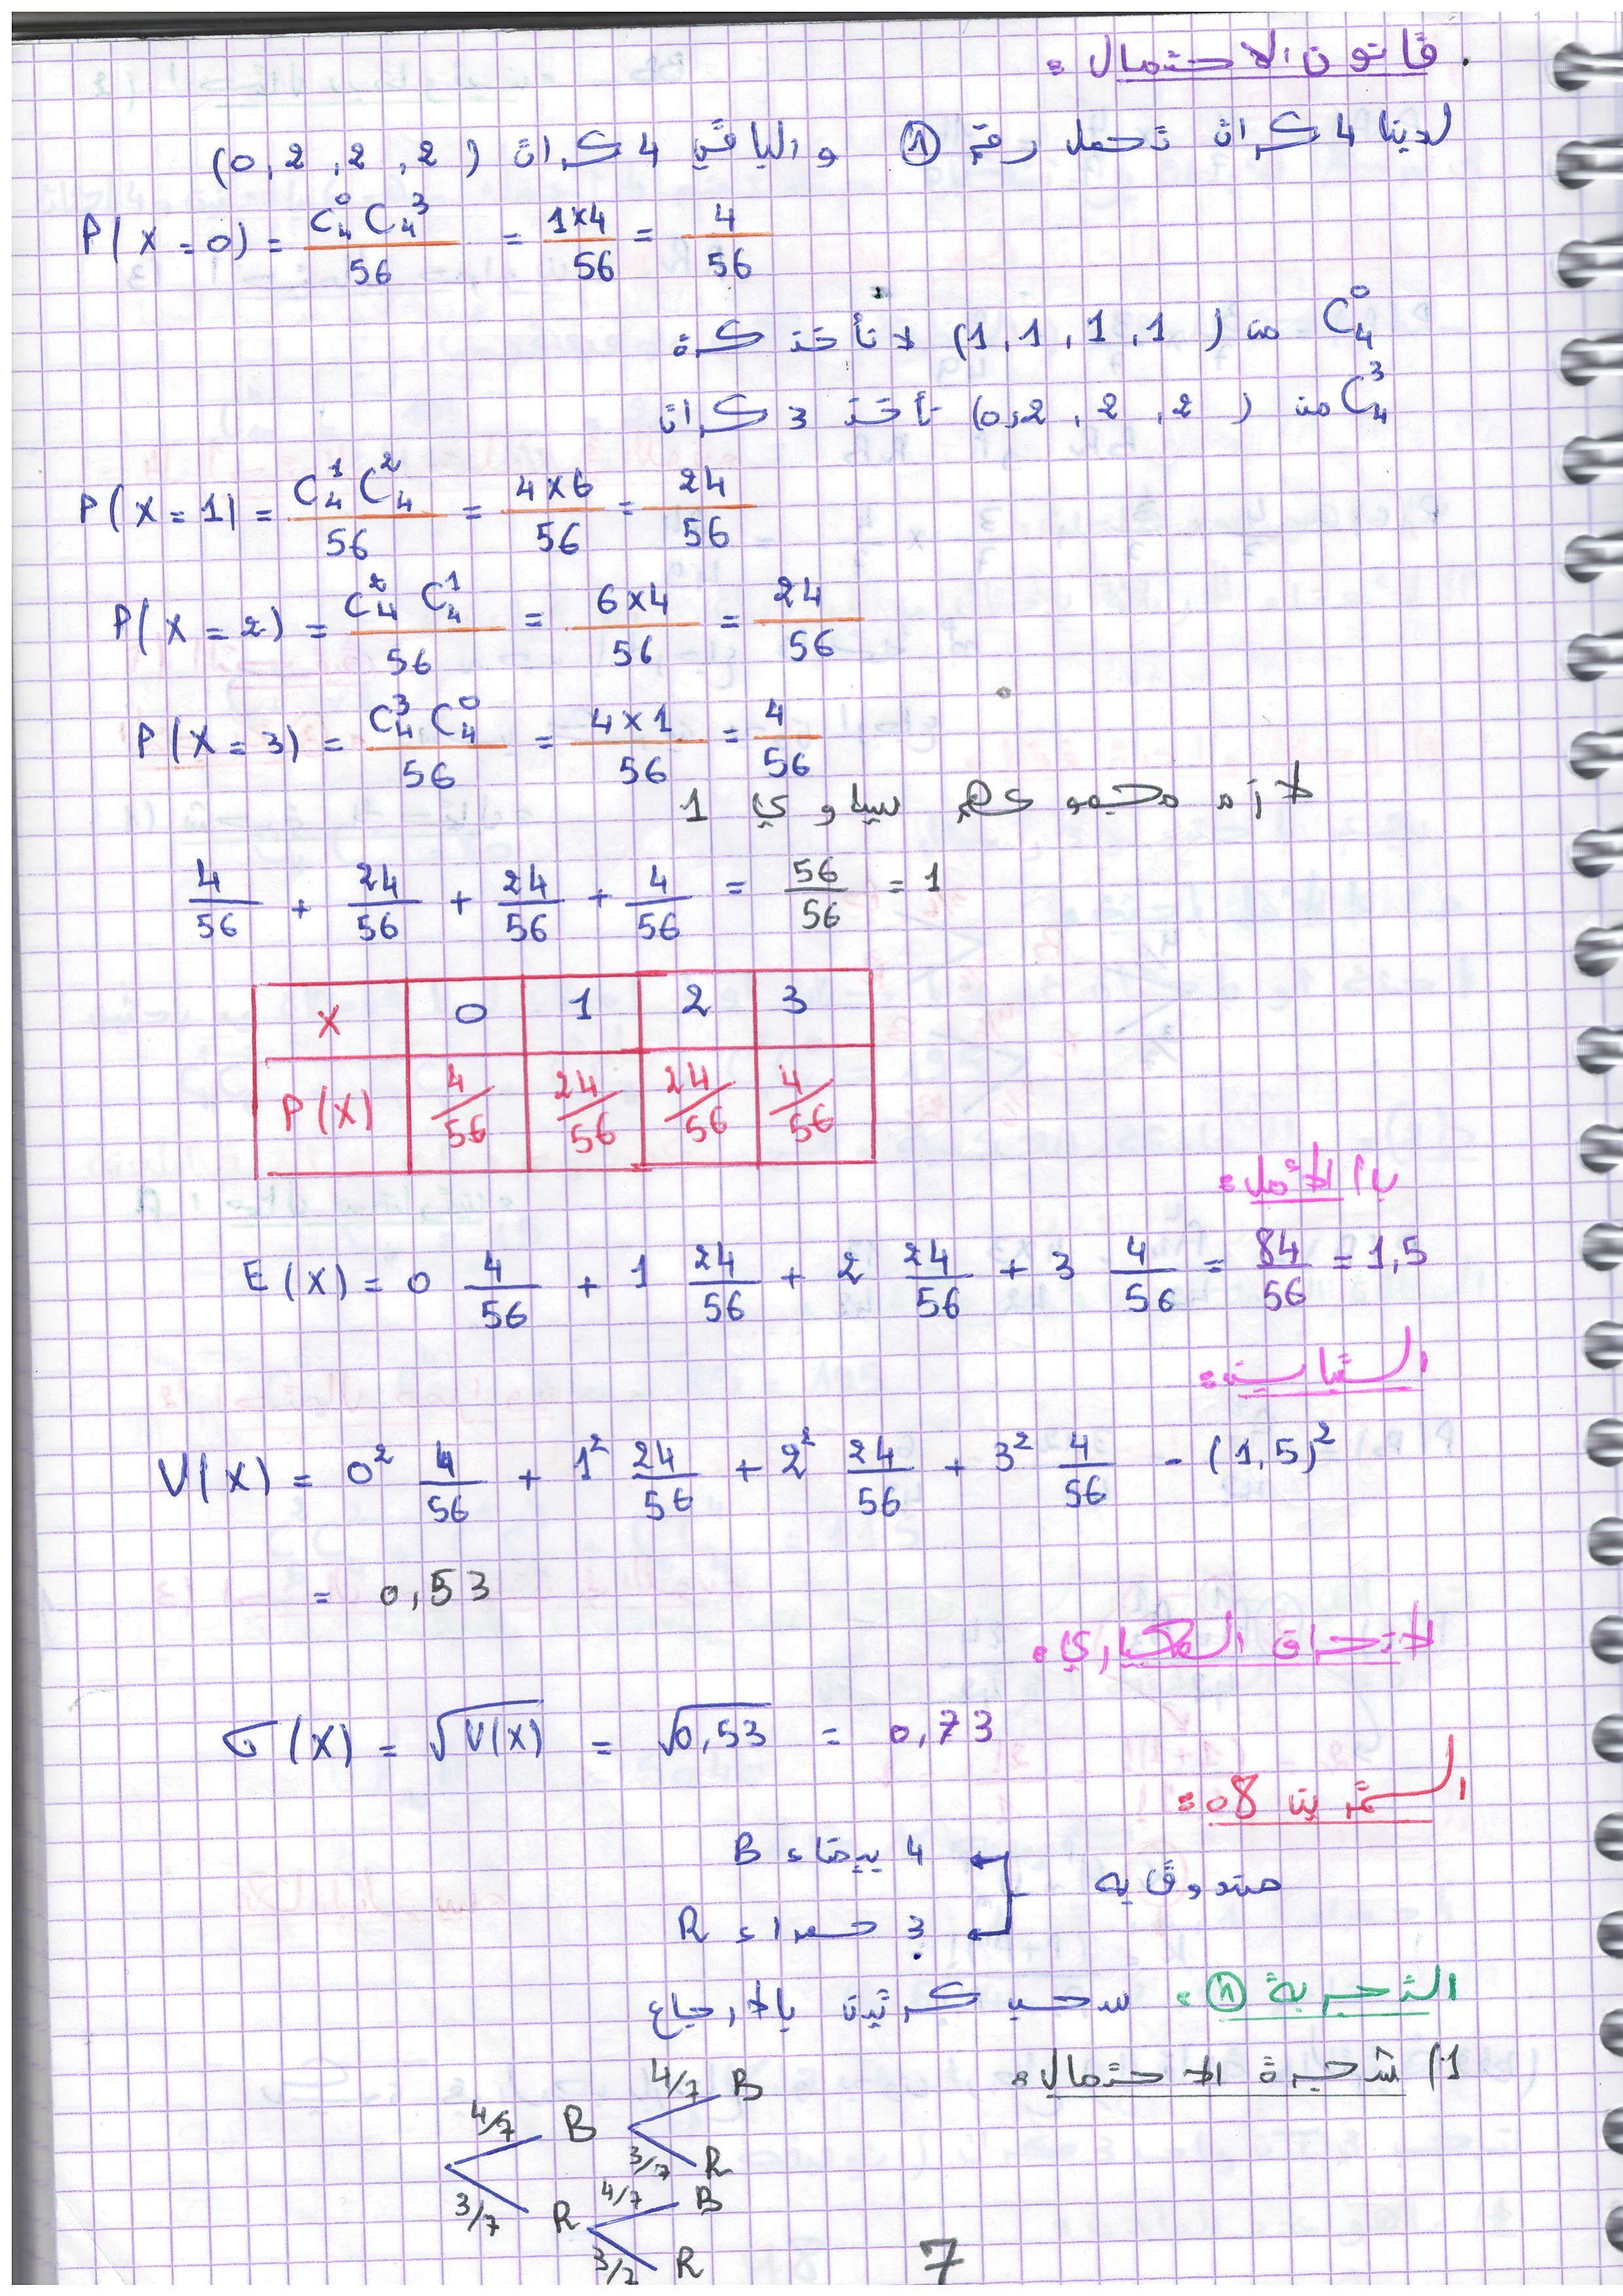 . قانون الاحتمال :
لدينا 4 كرات تحمل رقم ① والباقي 4 كرات (0, 2, 2, 2)
P(X = 0) = C₄⁰ C₄³ / 56 = 1×4 / 56 = 4 / 56
C₄⁰ من (1, 1, 1, 1) لا نأخذ كرة
C₄³ من (0, 2, 2, 2) نأخذ 3 كرات
P(X = 1) = C₄¹ C₄² / 56 = 4×6 / 56 = 24 / 56
P(X = 2) = C₄² C₄¹ / 56 = 6×4 / 56 = 24 / 56
P(X = 3) = C₄³ C₄⁰ / 56 = 4×1 / 56 = 4 / 56
لازم مجموعهم يساوي 1
4/56 + 24/56 + 24/56 + 4/56 = 56/56 = 1
X 0 1 2 3
P(X) 4/56 24/56 24/56 4/56
الأمل :
E(X) = 0 4/56 + 1 24/56 + 2 24/56 + 3 4/56 = 84/56 = 1,5
التباين :
V(X) = 0² 4/56 + 1² 24/56 + 2² 24/56 + 3² 4/56 - (1,5)²
= 0,53
لانحراف المعياري :
σ(X) = √V(X) = √0,53 = 0,73
التمرين 08 :
صندوق به
4 بيضاء B
3 حمراء R
التجربة ① : سحب كرتين بالارجاع
1) شجرة الاحتمال :
4/7 B 4/7 B
3/7 R
3/7 R 4/7 B
3/7 R
7